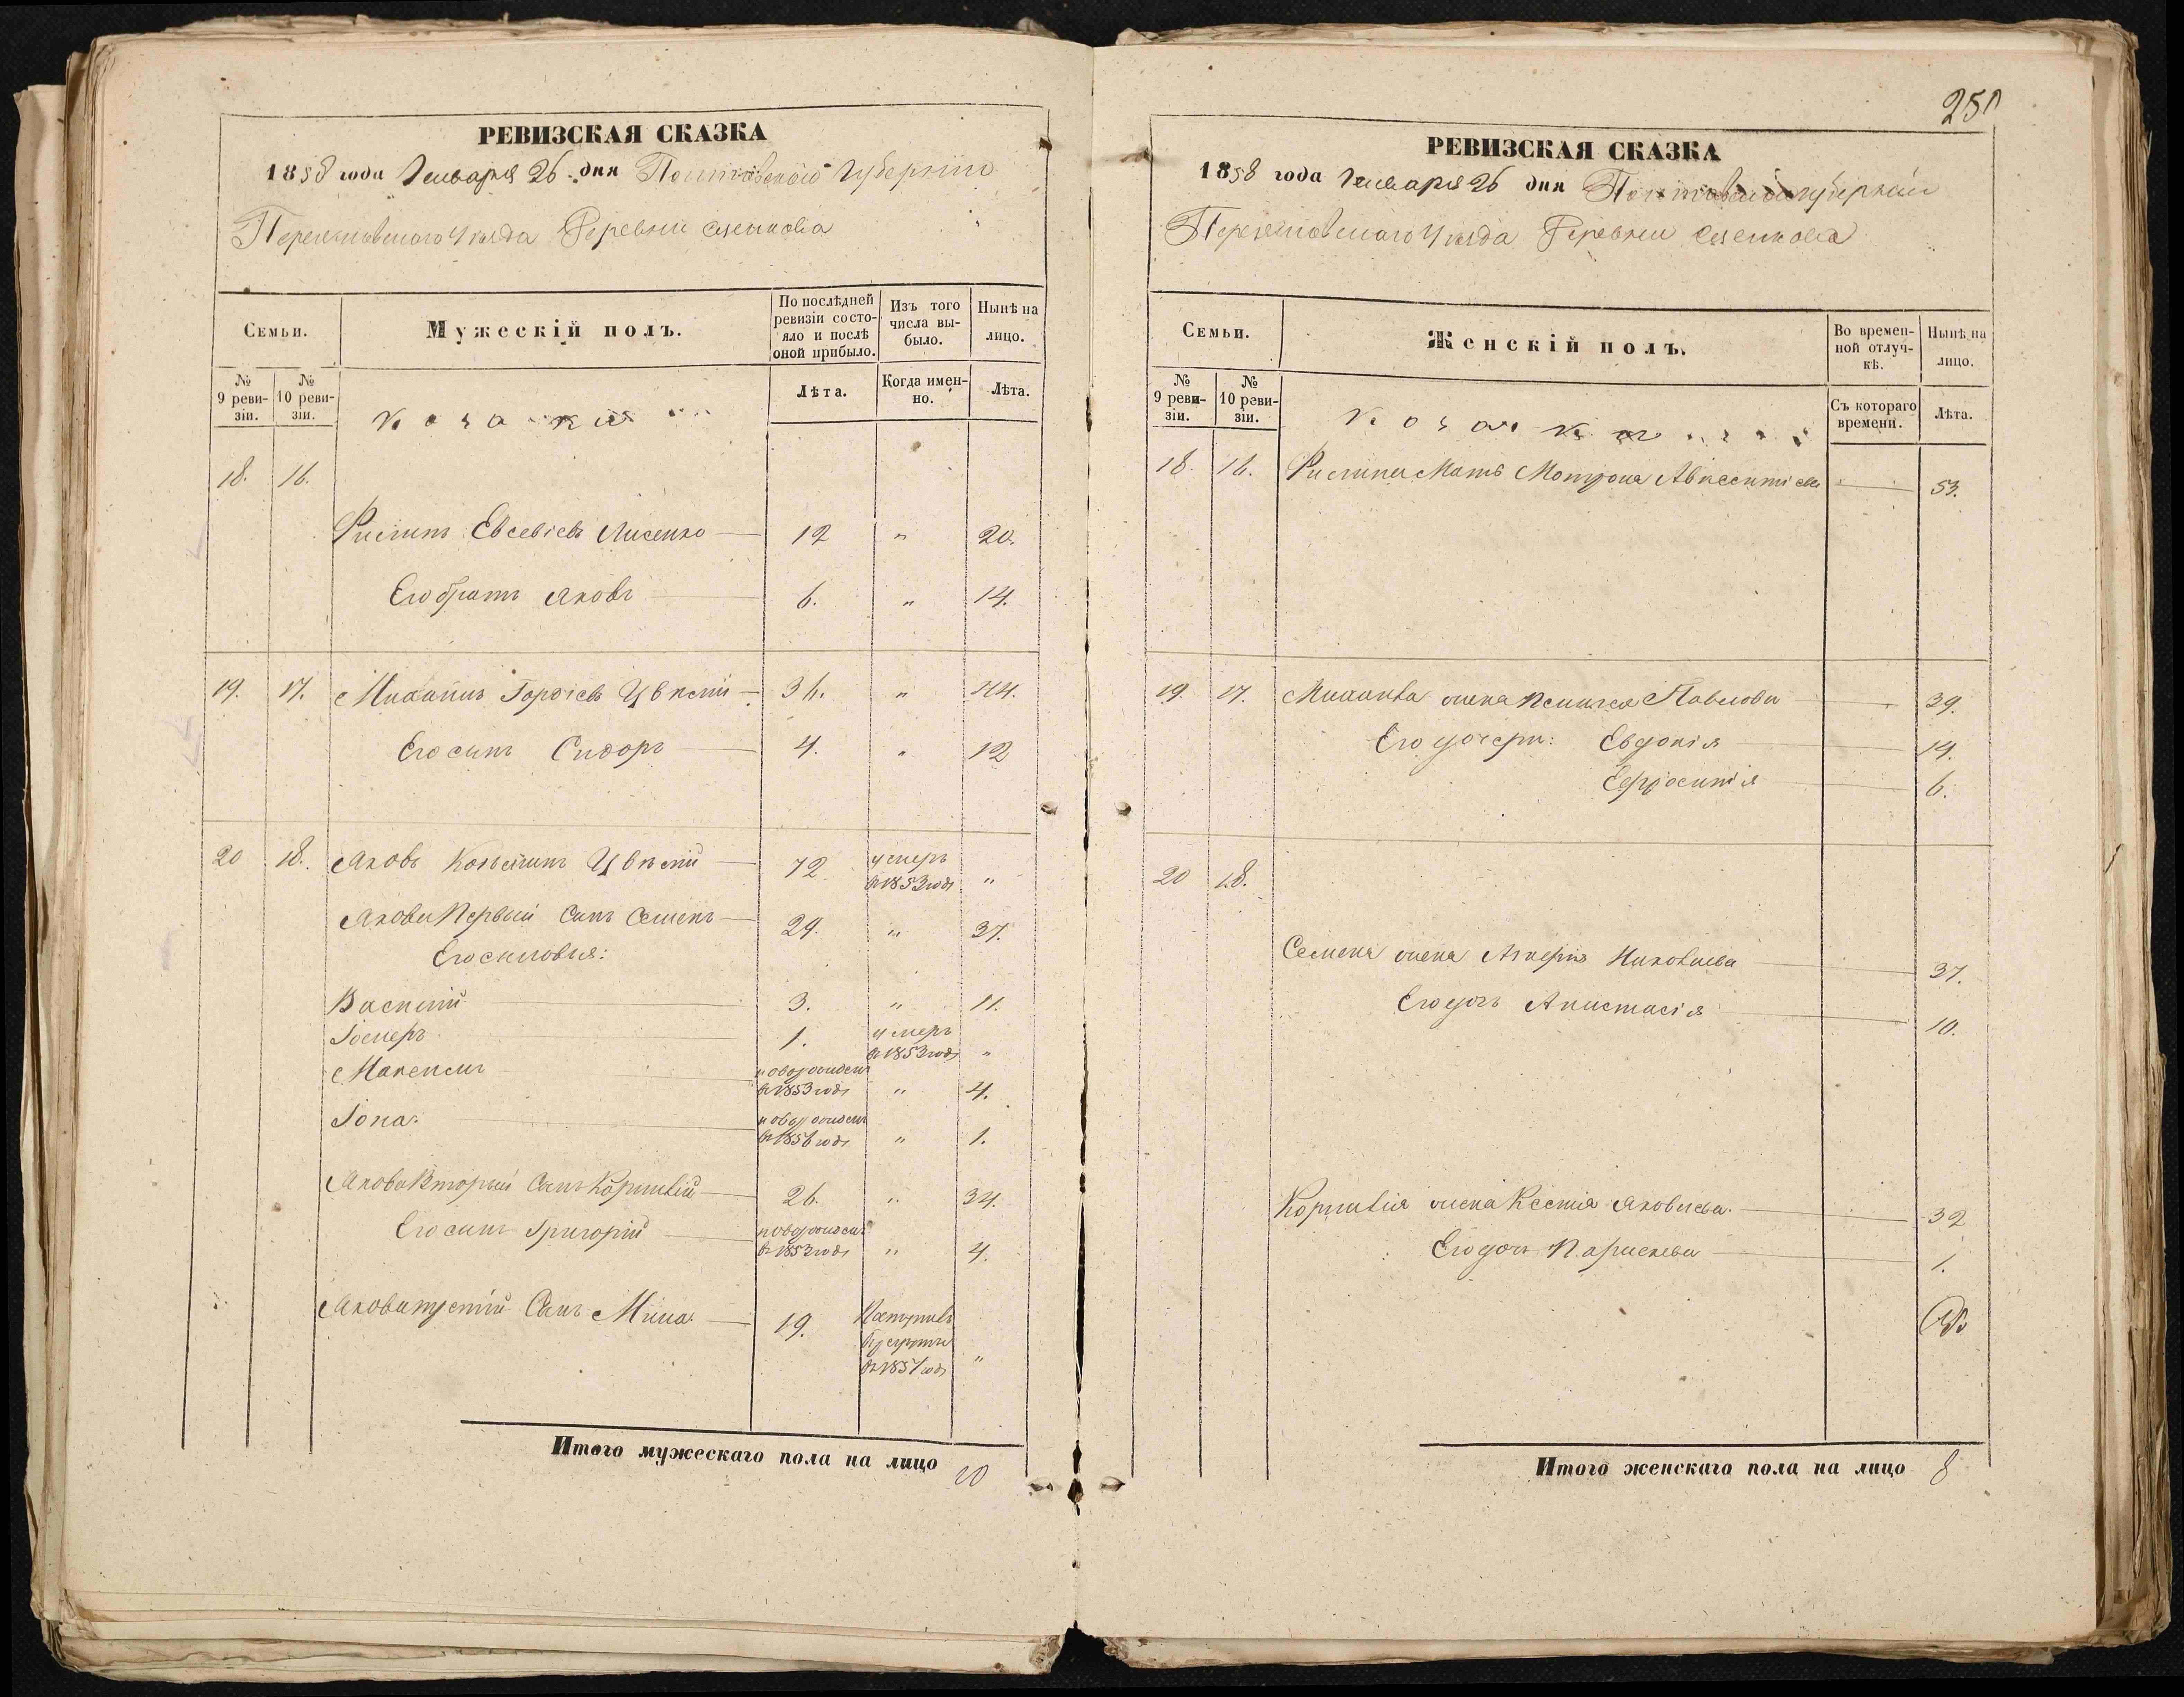 РЕВИЗСКАЯ СКАЗКА
1858 года Января 26 дня Полтавской Губернии
Уезда Деревни
Семьи.
Мужескій полъ.
По послѣдней ревизіи состояло и послѣ оной прибыло.
Изъ того числа выбыло.
Нынѣ на лицо.
№ 9 ревизіи.
№ 10 ревизіи.
Козаки
Лѣта.
Когда именно.
Лѣта.
18. 16.
Евсевіевъ Лисенко 12 " 20.
Его братъ Яковъ 6. " 14.
19. 17. Михаилъ Гордіевъ 36. " 44.
Его сынъ Сидоръ 4. " 12
20 18. Яковъ 72 умеръ
въ 1853 годѣ "
Якова Первый Сынъ Семенъ 29. " 37.
Его сыновья:
Василій 3. " 11.
1. умеръ
въ 1853 годѣ "
Максимъ новорожденъ
въ 1853 годѣ " 4.
Іона. новорожденъ
въ 1856 годѣ " 1.
Якова Вторый Сынъ Корнилій 26. " 34.
Его сынъ Григорій новорожденъ
въ 1853 годѣ " 4.
Якова третій Сынъ Мина 19.
въ рекруты
"
Итого мужескаго пола на лицо 10
251
РЕВИЗСКАЯ СКАЗКА
1858 года Января 26 дня Полтавской губерніи
Уезда Деревни
Семьи.
Женскій полъ.
Во временной отлучкѣ.
Нынѣ на лицо.
№ 9 ревизіи.
№ 10 ревизіи.
Козачки
Съ котораго времени.
Лѣта.
18. 16. Мать Мотрона 53.
19. 17. Михаила жена Павлова 39.
Его дочери: Евдокія 14.
Ефросинія 6.
20 18.
Семена жена 37.
Его дочь Анастасія 10.
Корнилія жена Ксенія Яковлева 32
Его дочь Параскева 1.
Итого женскаго пола на лицо 8